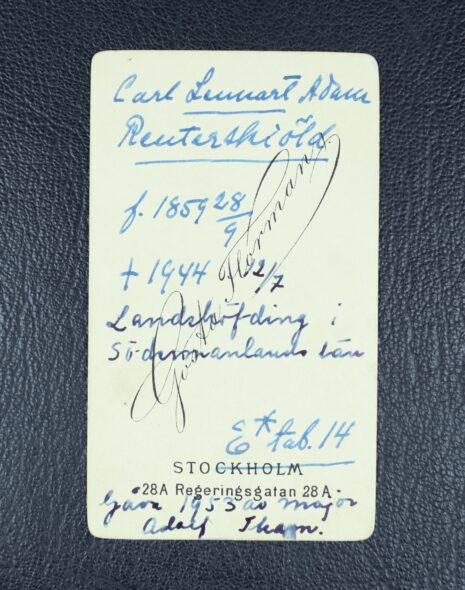 Carl Lennart Adam
Reuterskiöld
f. 1859 28/9
Gösta Florman
+ 1944 12/7
Landshöfding i
Södermanlands län
E* tab. 14
STOCKHOLM
28A Regeringsgatan 28A
Gåva 1953 av major
Adolf Tham.